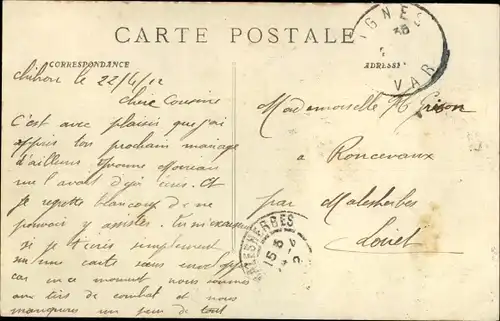 CARTE POSTALE
CORRESPONDANCE
ADRESSE
IGNES
VAR
le 22/4/12
Chère Cousine
C'est avec plaisir que j'ai
appris ton prochain mariage
d'ailleurs Yvonne
me l'avait déjà écris. Et
je regrette beaucoup de ne
pouvoir y assister. Tu m'excuseras
si je t'écris simplement
sur une carte sans
car en ce moment nous sommes
aux tirs de combat et nous
manquons un peu de tout
Mademoiselle M Grison
a Roncevaux
par Malesherbes
Loiret
MALESHERBES
15 5